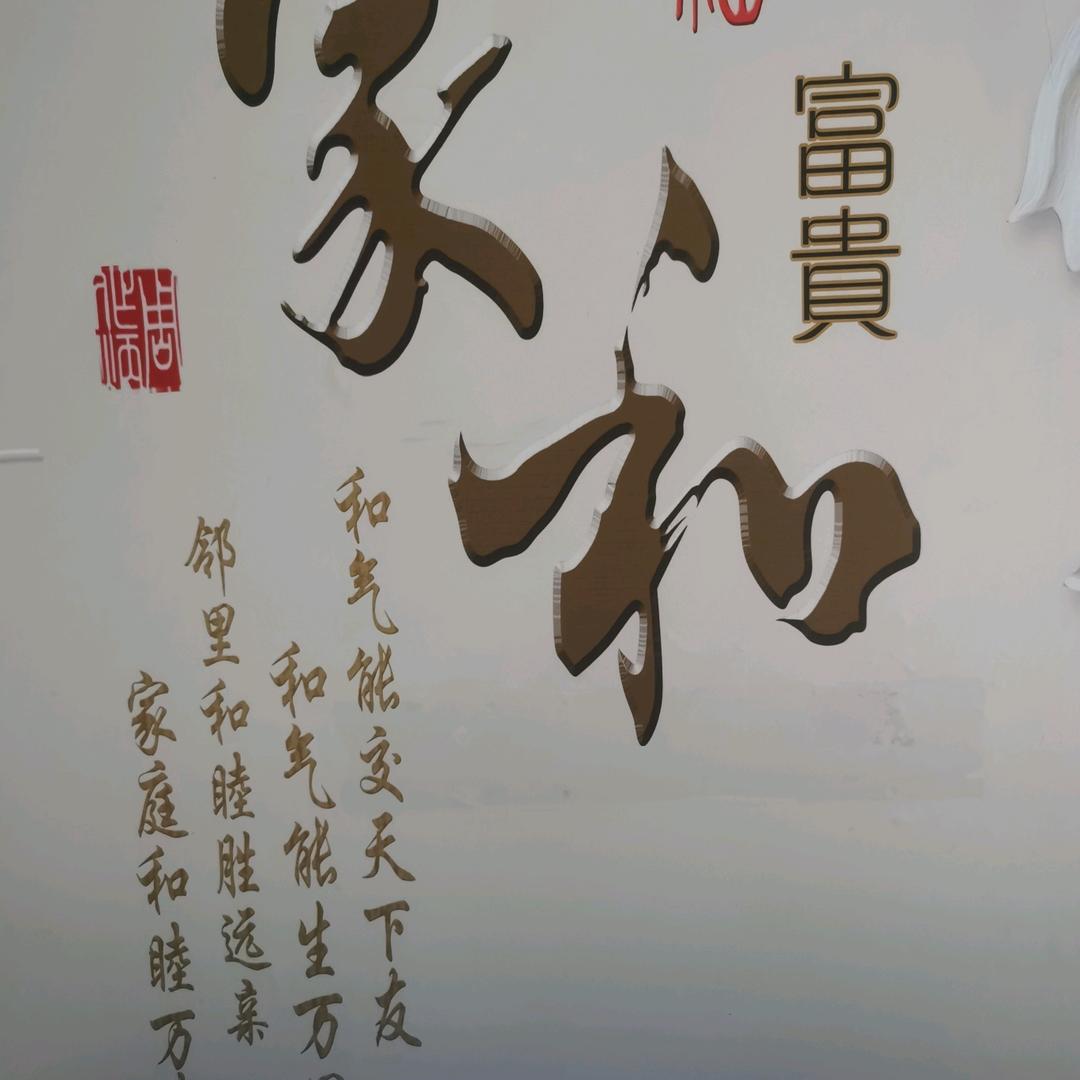 家和
富貴
和气能交天下友
和气能生万
邻里和睦胜远亲
家庭和睦万